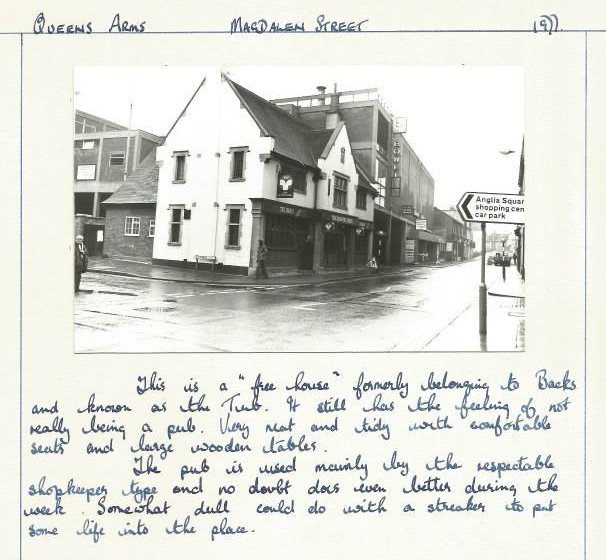 QUEENS ARMS MAGDALEN STREET 1977.
Anglia Squar
shopping cen
car park
This is a "free house" formerly belonging to Backs
and known as the Trub. It still has the feeling of not
really being a pub. Very neat and tidy with comfortable
seats and large wooden tables.
The pub is used mainly by the respectable
shopkeeper type and no doubt does even better during the
week. Somewhat dull could do with a streaker to put
some life into the place.